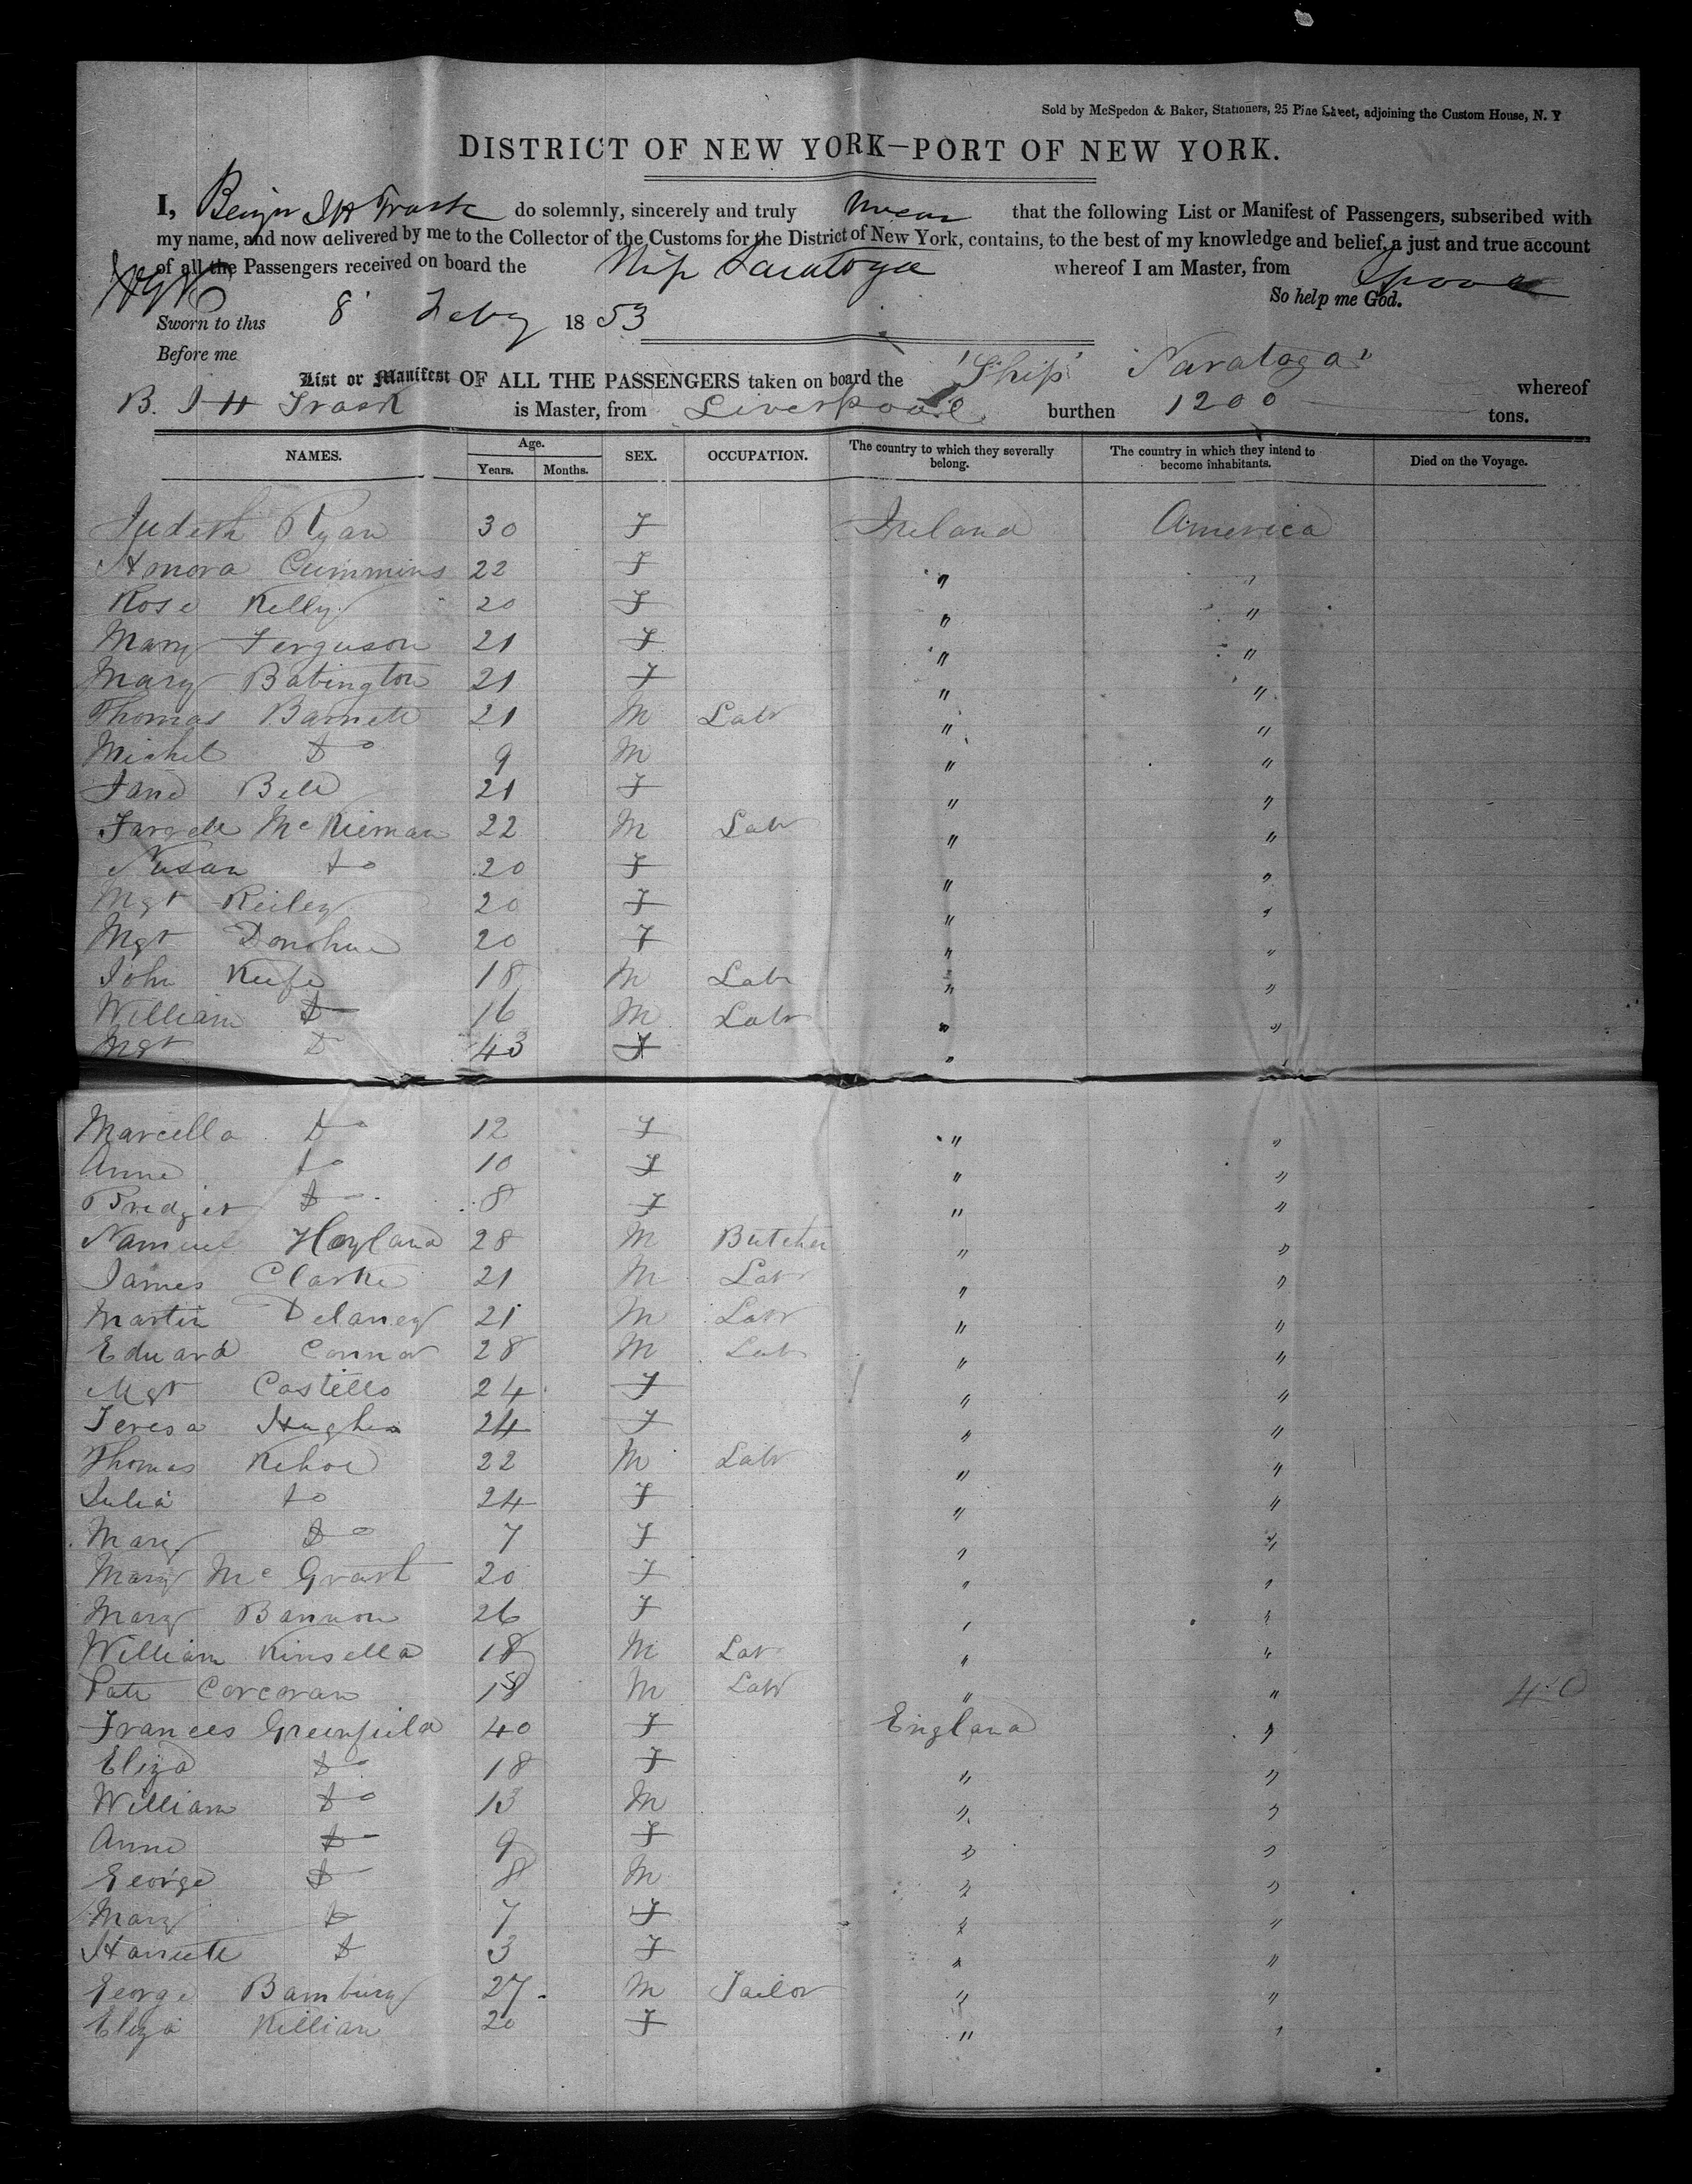 Sold by McSpedon & Baker, Stationers, 25 Pine Street, adjoining the Custom House, N. Y
DISTRICT OF NEW YORK—PORT OF NEW YORK.
I, Benjn I H Trask do solemnly, sincerely and truly swear that the following List or Manifest of Passengers, subscribed with
my name, and now delivered by me to the Collector of the Customs for the District of New York, contains, to the best of my knowledge and belief, a just and true account
of all the Passengers received on board the Ship Saratoga whereof I am Master, from Lpool
So help me God.
Sworn to this 8 Feby 1853
Before me
List or Manifest OF ALL THE PASSENGERS taken on board the "Ship Saratoga" whereof
B. I H Trask is Master, from Liverpool burthen 1200 tons.
NAMES. Age. Years. Months. SEX. OCCUPATION. The country to which they severally belong. The country in which they intend to become inhabitants. Died on the Voyage.
Judeth Ryan 30 F Ireland America
Honora Cummins 22 F " "
Rose Kelly 20 F " "
Mary Ferguson 21 F " "
Mary Babington 21 F " "
Thomas Barnett 21 M Labr " "
Michel Do 9 M " "
Jane Bell 21 F " "
McKiernan 22 M Labr " "
Susan do 20 F " "
Mgt Reiley 20 F " "
Mgt Donohue 20 F " "
John Keefe 18 M Labr " "
William Do 16 M Labr " "
Mgt Do 43 F "
Marcella Do 12 F " "
Anne do 10 F " "
Bridget Do 8 F " "
Samuel Hoyland 28 M Butcher " "
James Clarke 21 M Labr " "
Martin Delaney 21 M Labr " "
Edward Connor 28 M Labr " "
Mgt Costello 24 F " "
Teresa Hughes 24 F " "
Thomas Kehoe 22 M Labr " "
Julia do 24 F " "
Mary Do 7 F " "
Mary McGrath 20 F " "
Mary Bannon 26 F " "
William Kinsella 18 M Labr " "
Patt Corcoran 18 M Labr " " 40
Frances Greenfield 40 F England "
Eliza Do 18 F " "
William Do 13 M " "
Anne Do 9 F " "
George Do 8 M " "
Mary Do 7 F " "
Harriette Do 3 F " "
George Bambury 27 M Tailor " "
Eliza Killian 20 F " "